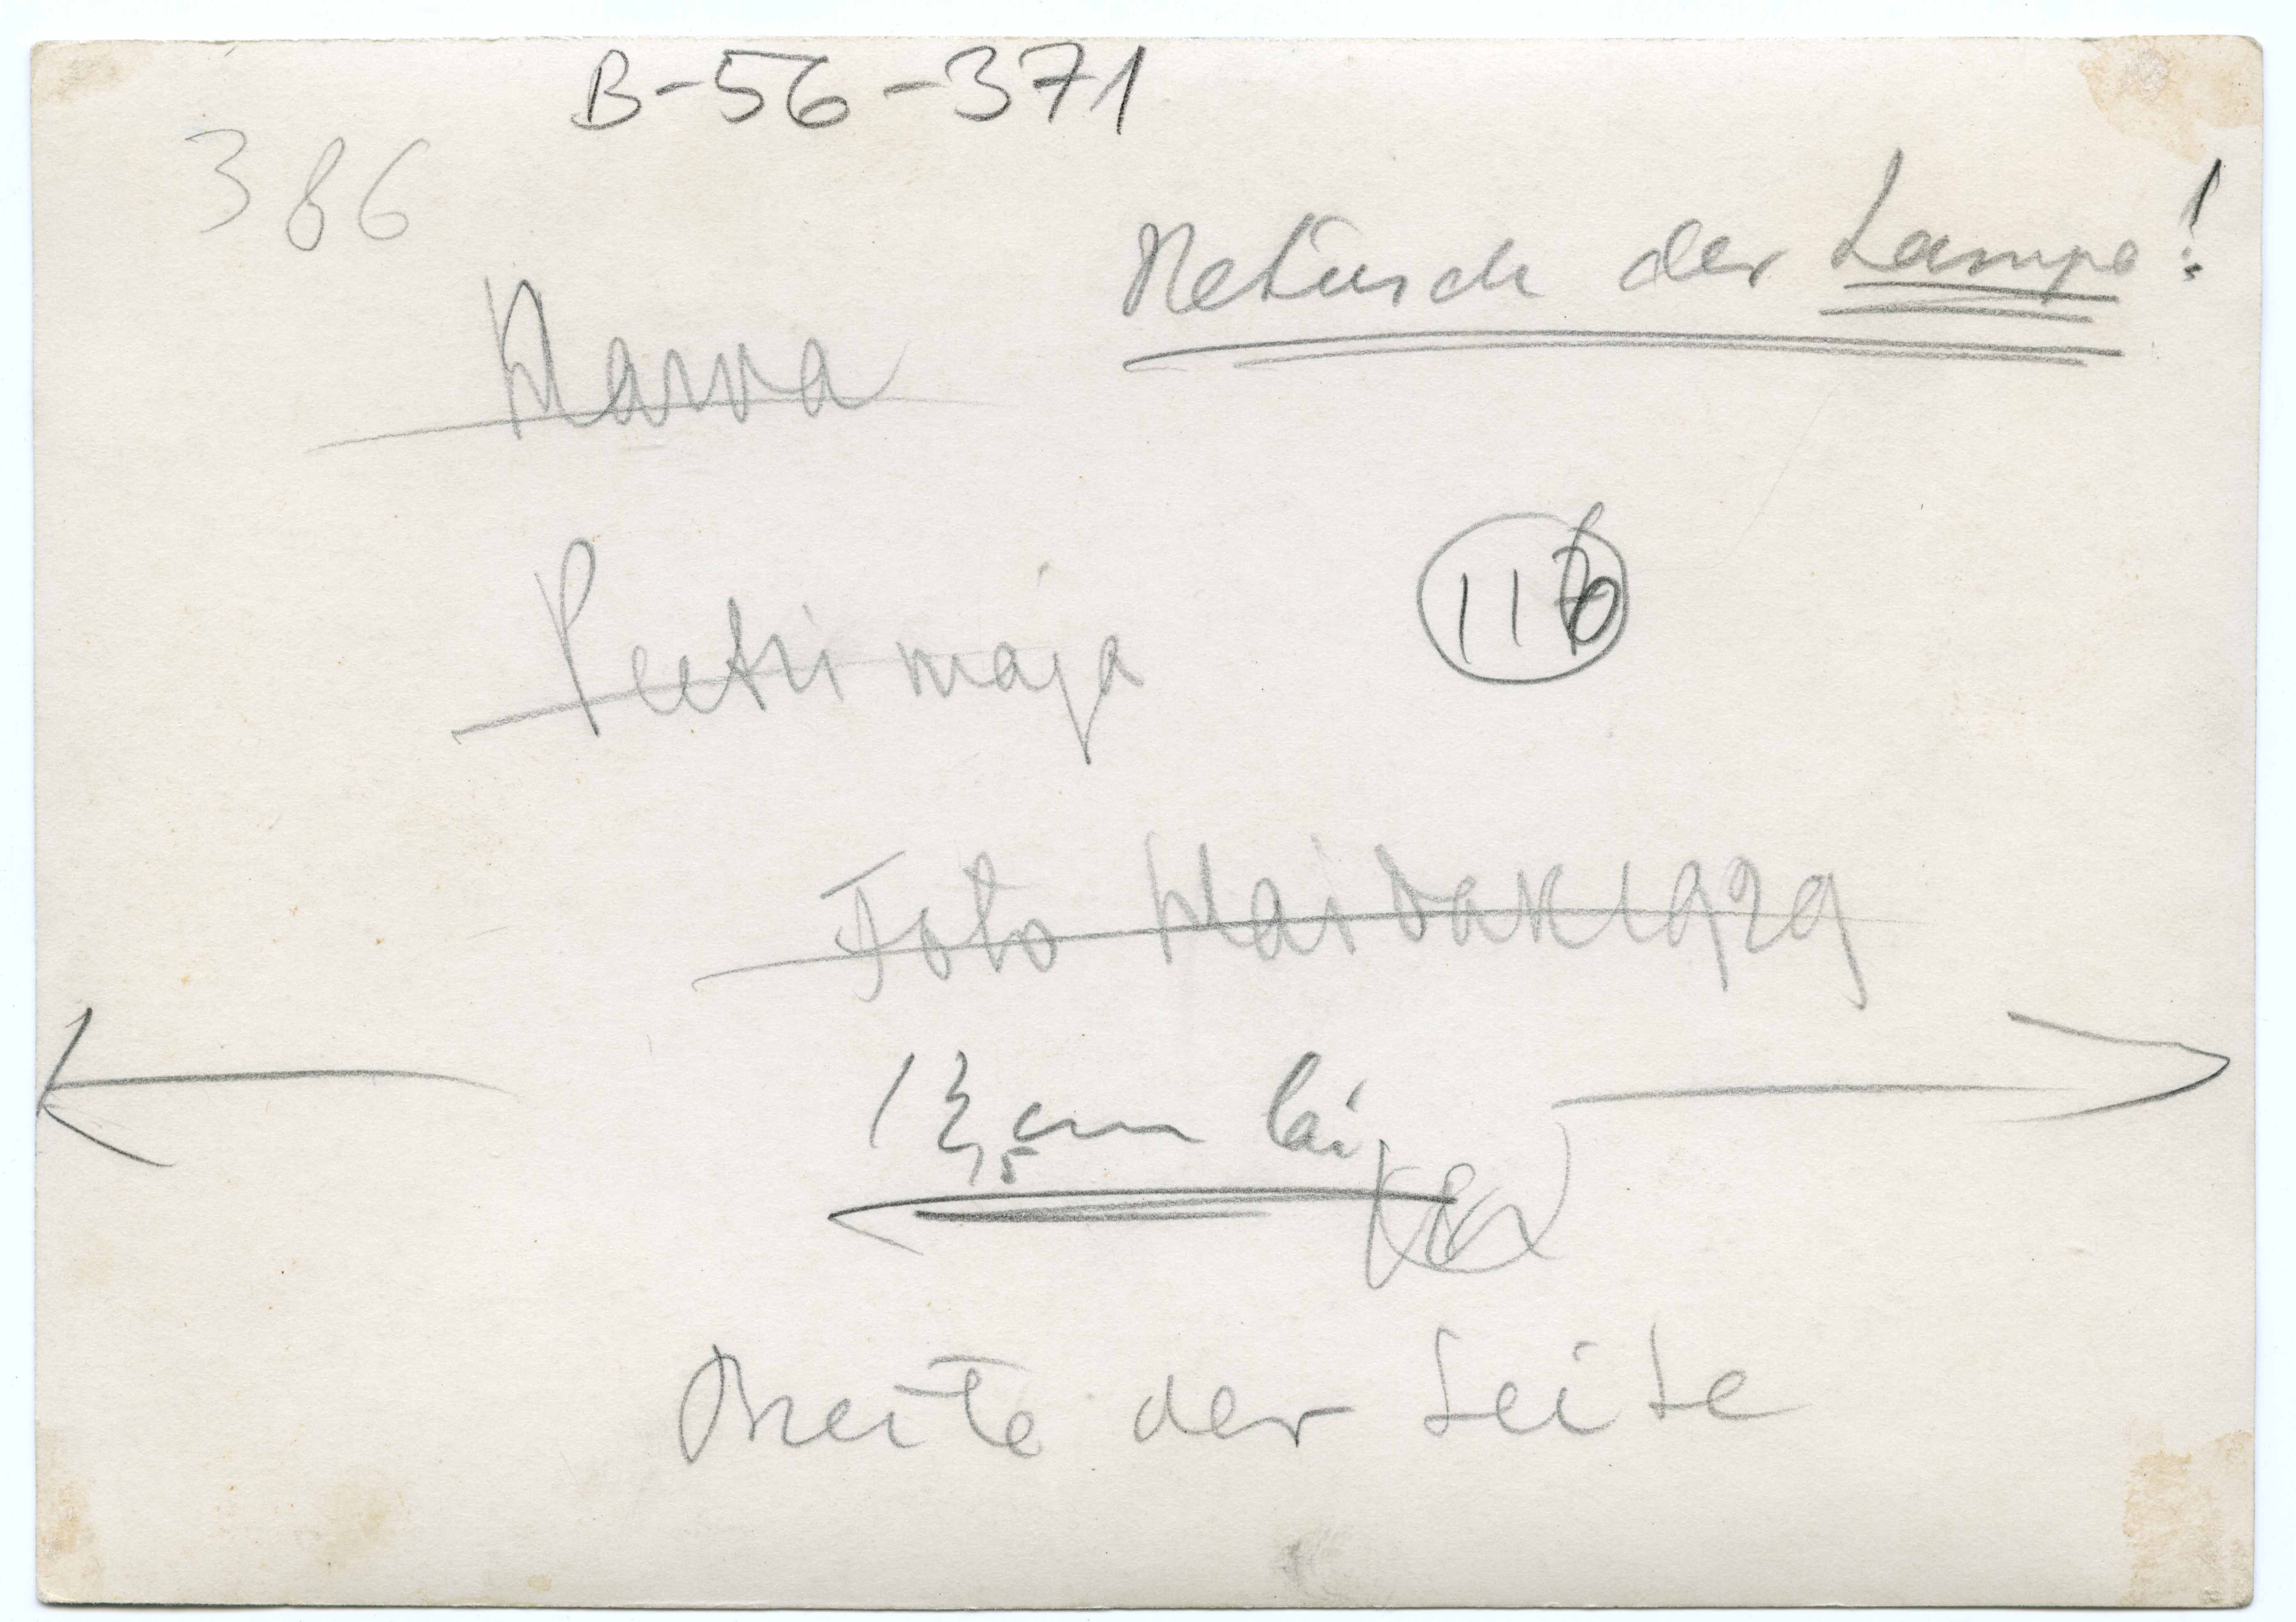 B-56-371
386
Retusch der Lampe!
Narva
Peetri maja
116
Foto Naidak 1929
13,5 cm lai
Breite der Seite